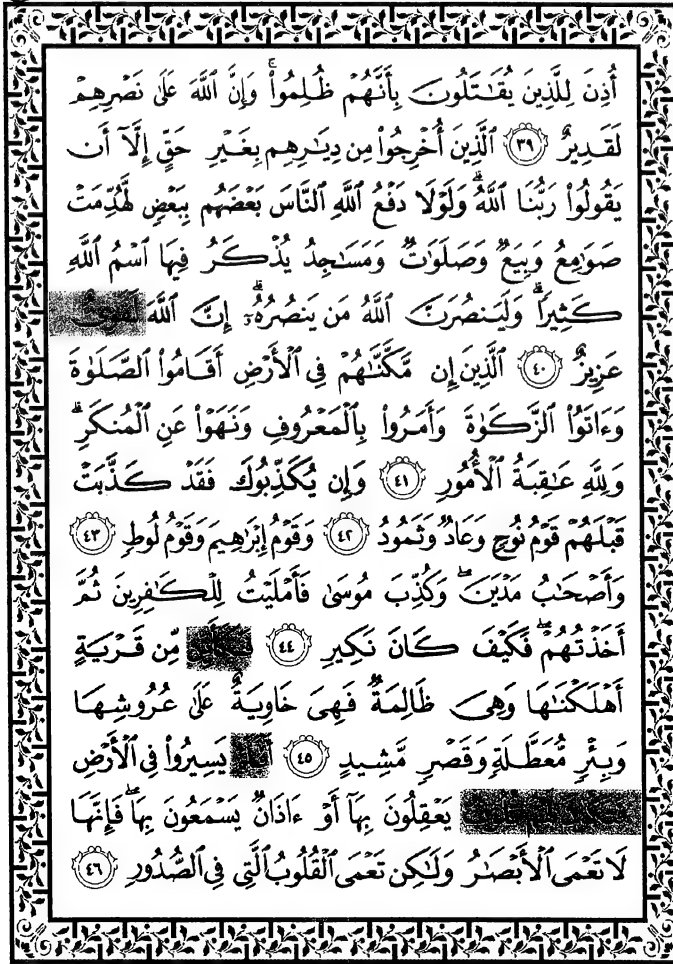 أُذِنَ لِلَّذِينَ يُقَٰتَلُونَ بِأَنَّهُمْ ظُلِمُوا۟ ۚ وَإِنَّ ٱللَّهَ عَلَىٰ نَصْرِهِمْ
لَقَدِيرٌ ٣٩ ٱلَّذِينَ أُخْرِجُوا۟ مِن دِيَٰرِهِم بِغَيْرِ حَقٍّ إِلَّآ أَن
يَقُولُوا۟ رَبُّنَا ٱللَّهُ ۗ وَلَوْلَا دَفْعُ ٱللَّهِ ٱلنَّاسَ بَعْضَهُم بِبَعْضٍ لَّهُدِّمَتْ
صَوَٰمِعُ وَبِيَعٌ وَصَلَوَٰتٌ وَمَسَٰجِدُ يُذْكَرُ فِيهَا ٱسْمُ ٱللَّهِ
كَثِيرًا ۗ وَلَيَنصُرَنَّ ٱللَّهُ مَن يَنصُرُهُۥٓ ۗ إِنَّ ٱللَّهَ
عَزِيزٌ ٤٠ ٱلَّذِينَ إِن مَّكَّنَّٰهُمْ فِى ٱلْأَرْضِ أَقَامُوا۟ ٱلصَّلَوٰةَ
وَءَاتَوُا۟ ٱلزَّكَوٰةَ وَأَمَرُوا۟ بِٱلْمَعْرُوفِ وَنَهَوْا۟ عَنِ ٱلْمُنكَرِ ۗ
وَلِلَّهِ عَٰقِبَةُ ٱلْأُمُورِ ٤١ وَإِن يُكَذِّبُوكَ فَقَدْ كَذَّبَتْ
قَبْلَهُمْ قَوْمُ نُوحٍ وَعَادٌ وَثَمُودُ ٤٢ وَقَوْمُ إِبْرَٰهِيمَ وَقَوْمُ لُوطٍ ٤٣
وَأَصْحَٰبُ مَدْيَنَ ۖ وَكُذِّبَ مُوسَىٰ فَأَمْلَيْتُ لِلْكَٰفِرِينَ ثُمَّ
أَخَذْتُهُمْ ۖ فَكَيْفَ كَانَ نَكِيرِ ٤٤ مِّن قَرْيَةٍ
أَهْلَكْنَٰهَا وَهِىَ ظَالِمَةٌ فَهِىَ خَاوِيَةٌ عَلَىٰ عُرُوشِهَا
وَبِئْرٍ مُّعَطَّلَةٍ وَقَصْرٍ مَّشِيدٍ ٤٥ يَسِيرُوا۟ فِى ٱلْأَرْضِ
يَعْقِلُونَ بِهَآ أَوْ ءَاذَانٌ يَسْمَعُونَ بِهَا ۖ فَإِنَّهَا
لَا تَعْمَى ٱلْأَبْصَٰرُ وَلَٰكِن تَعْمَى ٱلْقُلُوبُ ٱلَّتِى فِى ٱلصُّدُورِ ٤٦